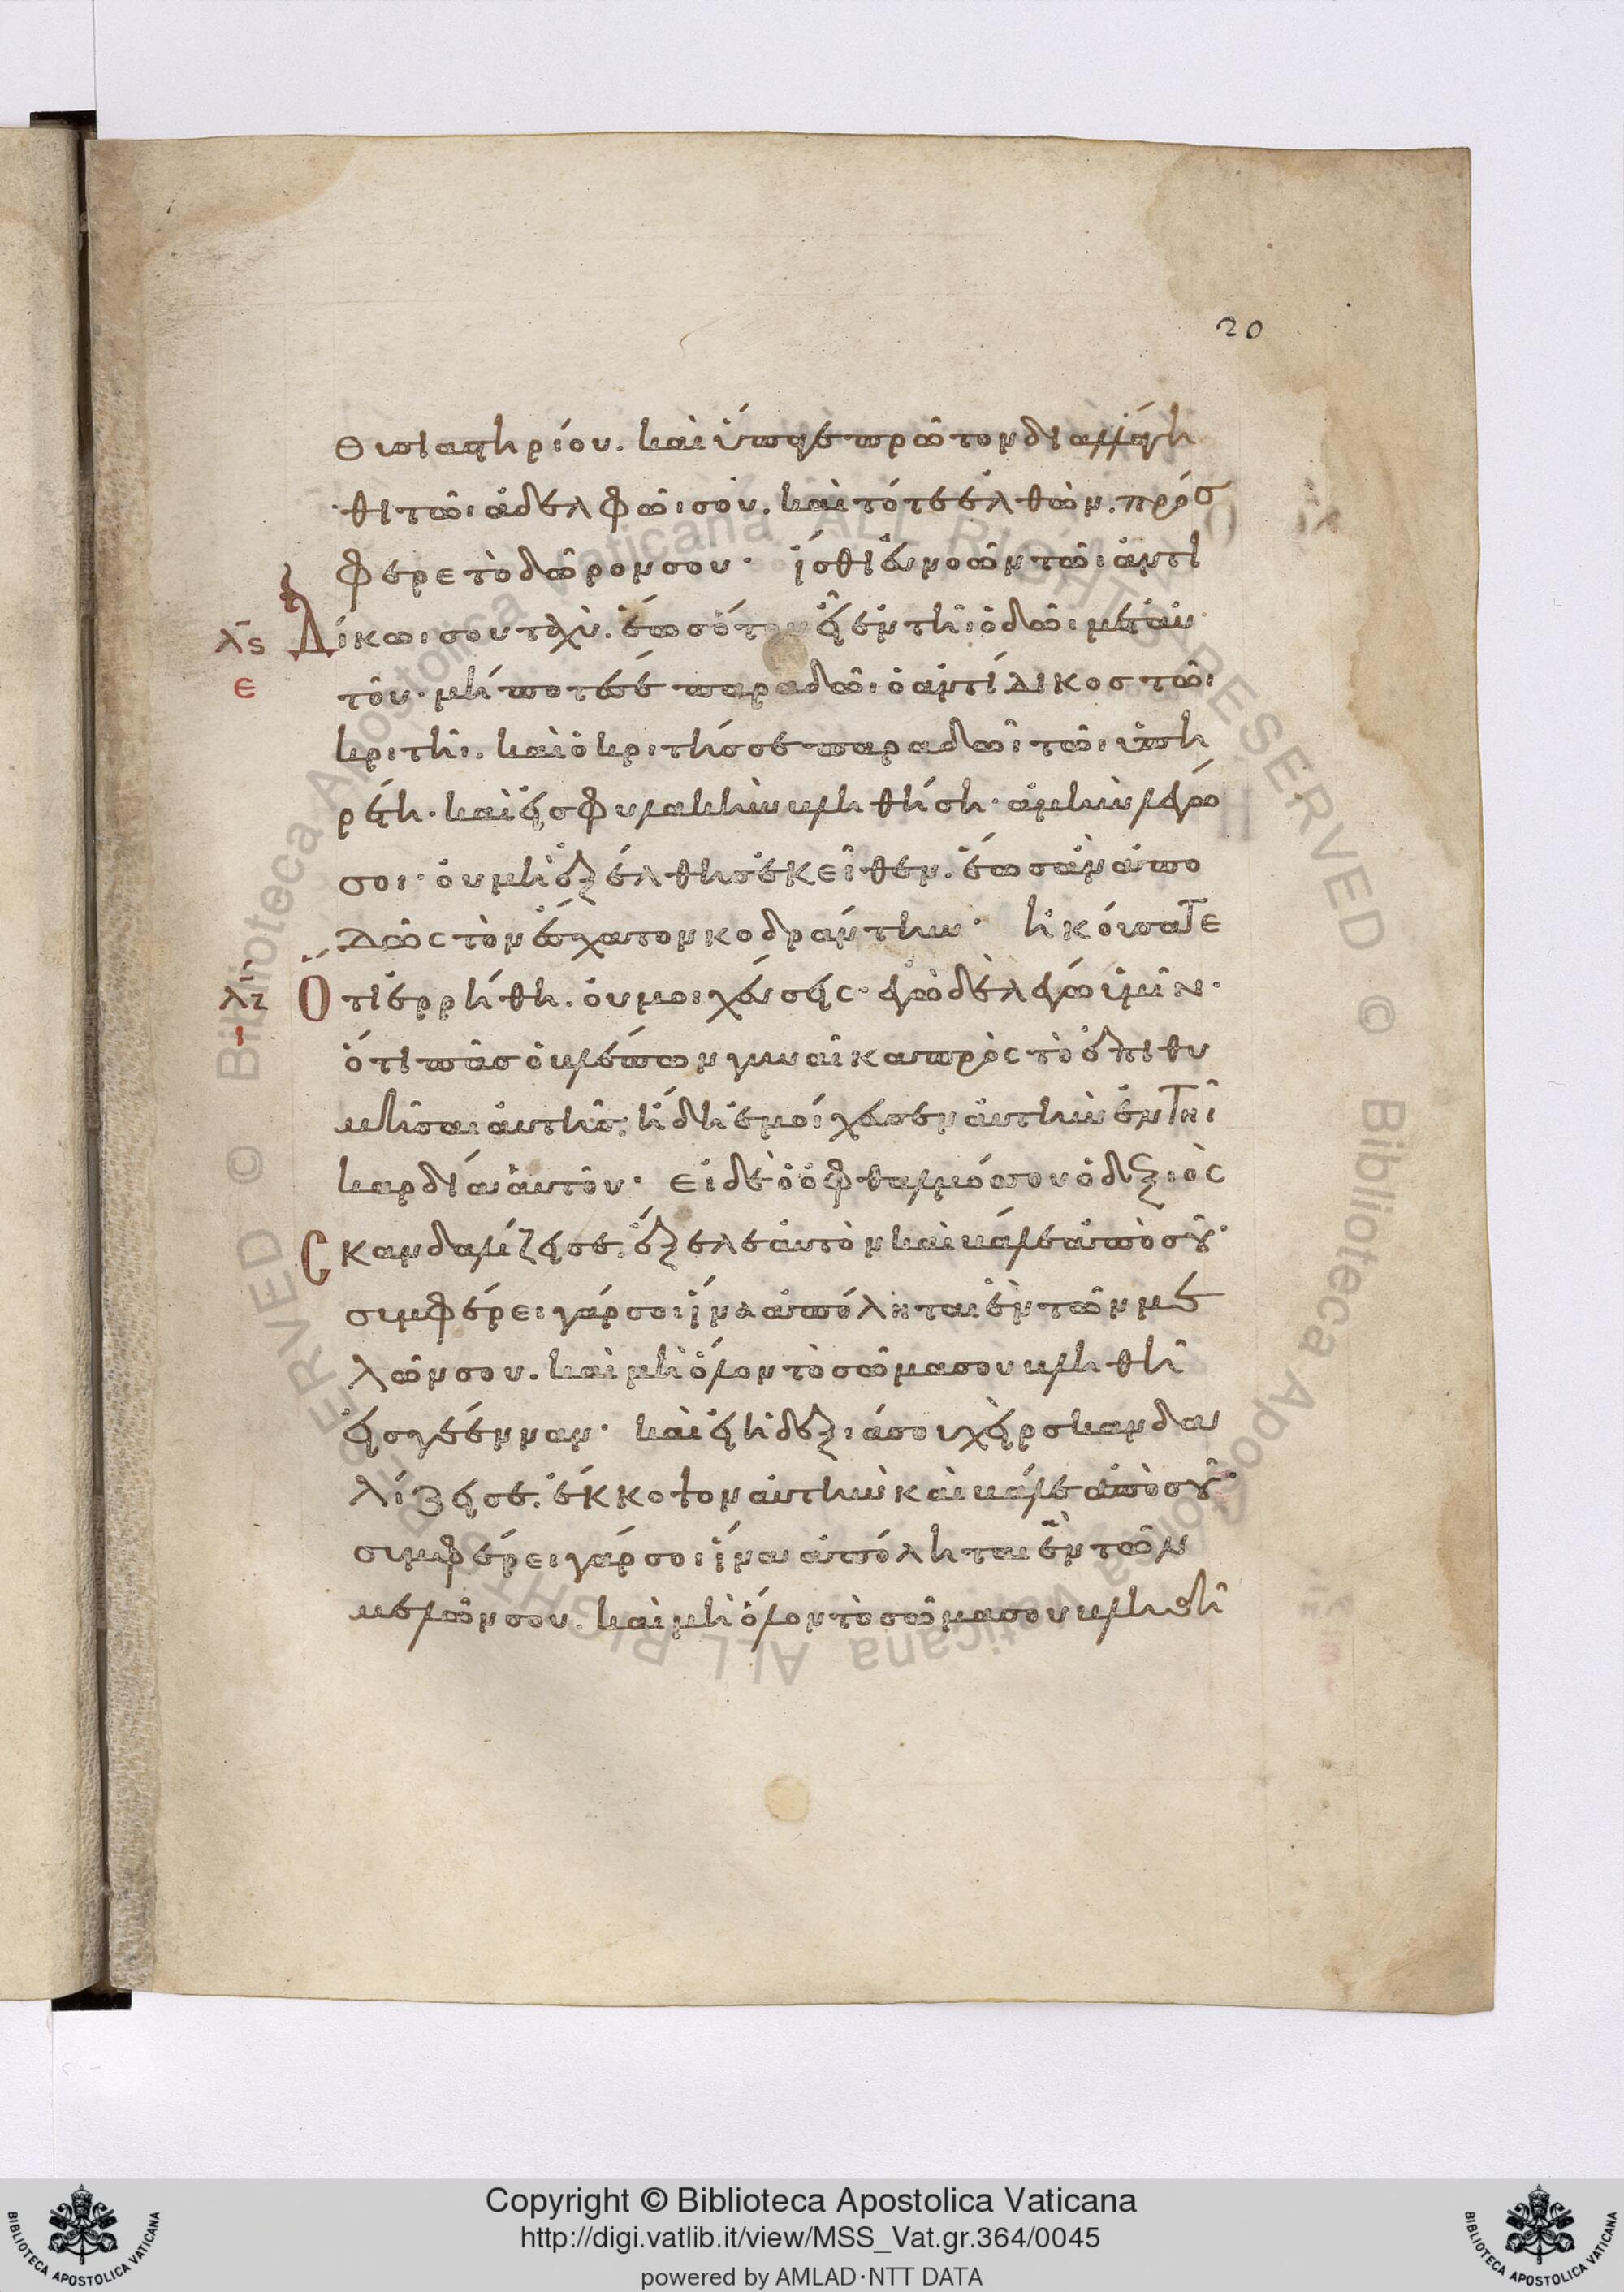 20
θυσιαστηρίου. καὶ ὕπαγε πρῶτον διαλλάγη
θι τῶι ἀδελφῶι σου. καὶ τότε ἐλθὼν. πρόσ
φερε τὸ δῶρον σου· ἴσθι εὐνοῶν τῶι ἀντι
λς Δίκωι σου ταχὺ. ἕωσ ὅτου εἶ ἐν τῆι ὁδῶι μετ αὐ
ε τοῦ· μήποτέ σε παραδῶι ὁ ἀντίδικοσ τῶι
κριτῆι. καὶ ὁ κριτήσ σε παραδῶι τῶι ὑπη
ρέτη· καὶ εἰσ φυλακὴν βληθήση· ἀμὴν λέγω
σοι· οὐ μὴ ἐξέλθησ ἐκεῖθεν. ἕωσ ἂν ἀπο
δῶς τὸν ἔσχατον κοδράντην· ἠκούσατε
λζ Ὅτι ἐρρήθη. οὐ μοιχεύσεις· ἐγὼ δὲ λέγω ὑμῖν·
ι ὅτι πᾶσ ὁ βλέπων γυναῖκα πρὸς τὸ ἐπιθυ
μῆσαι αὐτῆσ· ἤδη ἐμοίχευσεν αὐτὴν ἐν τῆι
καρδία αὐτοῦ· εἰ δὲ ὁ ὀφθαλμόσ σου ὁ δεξιὸς
Σκανδαλίζει σε. ἔξελε αὐτὸν καὶ βάλε ἀπὸ σοῦ·
συμφέρει γάρ σοι ἵνα ἀπόληται ἓν τῶν με
λῶν σου. καὶ μὴ ὅλον τὸ σῶμα σου βληθῆ
εἰσ γέενναν· καὶ εἰ ἡ δεξιά σου χεὶρ σκανδα
λίζει σε. ἔκκοψον αὐτὴν καὶ βάλε ἀπὸ σοῦ·
συμφέρει γάρ σοι ἵνα ἀπόληται ἓν τῶν
μελῶν σου. καὶ μὴ ὅλον τὸ σῶμα σου βληθῆ
Copyright © Biblioteca Apostolica Vaticana
http://digi.vatlib.it/view/MSS_Vat.gr.364/0045
powered by AMLAD·NTT DATA
BIBLIOTECA APOSTOLICA VATICANA
BIBLIOTECA APOSTOLICA VATICANA